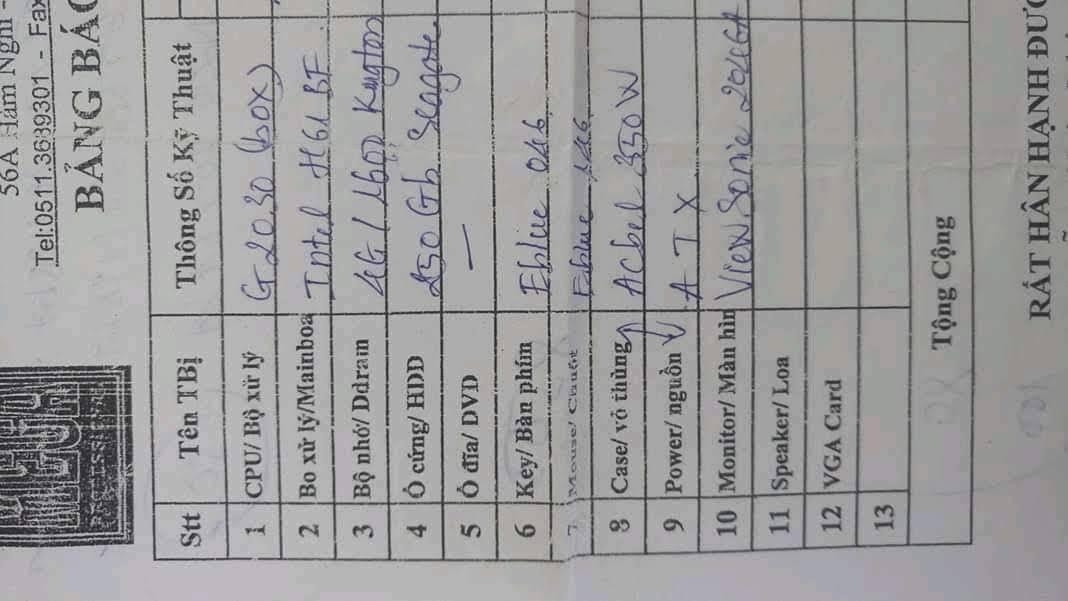 56A Hàm Nghi -
Tel:0511.3689301 - Fax
BẢNG BÁO
Stt Tên TBị Thông Số Kỹ Thuật
1 CPU/ Bộ xử lý G2030 (box)
2 Bo xử lý/Mainboa Intel H61 BF
3 Bộ nhớ/ Ddram 4G/1600 Kington
4 Ổ cứng/ HDD 250 Gb Seagate
5 Ổ đĩa/ DVD —
6 Key/ Bàn phím Eblue 046
7 Mouse/ Chuột Eblue
8 Case/ vỏ thùng Acbel 350W
9 Power/ nguồn ATX
10 Monitor/ Màn hìn ViewSonic
11 Speaker/ Loa
12 VGA Card
13
Tộng Cộng
RẤT HÂN HẠNH ĐƯỢ